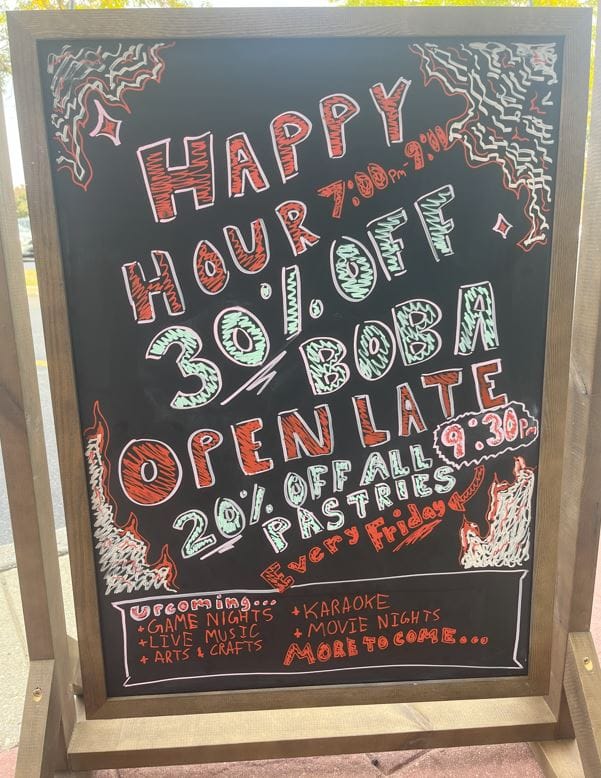 HAPPY
HOUR 7:00pm-9:00
30% OFF
BOBA
OPEN LATE
9:30P
20% OFF ALL
PASTRIES
Every Friday
Upcoming...
+GAME NIGHTS
+LIVE MUSIC
+ARTS & CRAFTS
+KARAOKE
+MOVIE NIGHTS
MORE TO COME...